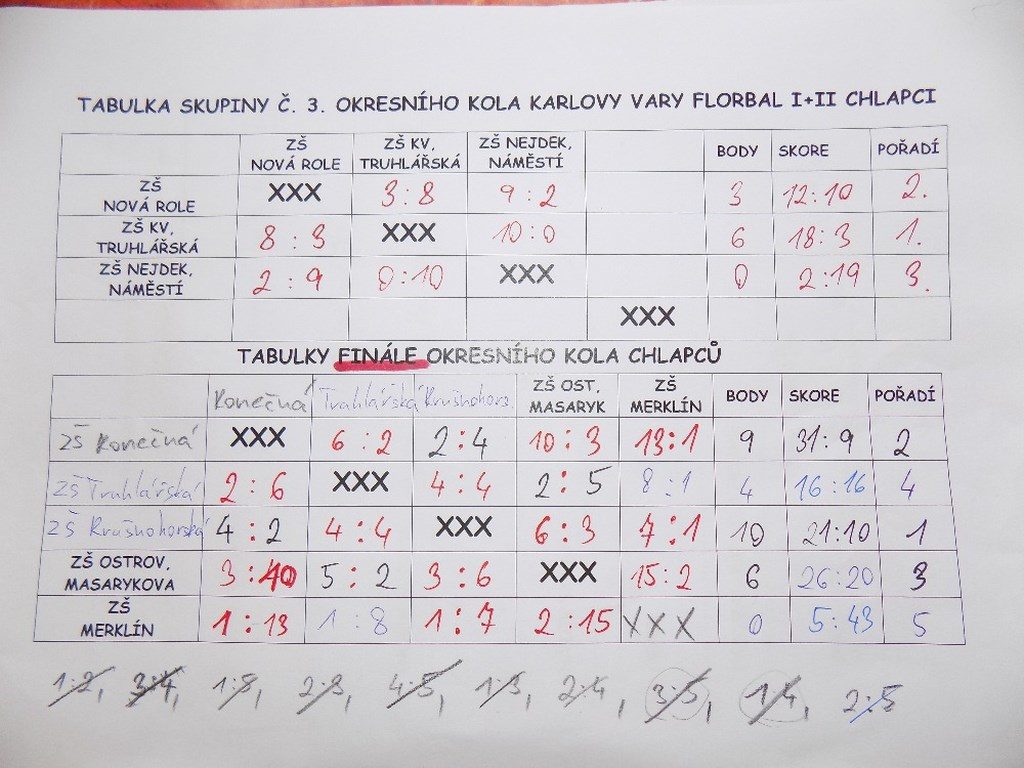 TABULKA SKUPINY Č. 3. OKRESNÍHO KOLA KARLOVY VARY FLORBAL I+II CHLAPCI
ZŠ NOVÁ ROLE ZŠ KV, TRUHLÁŘSKÁ ZŠ NEJDEK, NÁMĚSTÍ BODY SKORE POŘADÍ
ZŠ NOVÁ ROLE XXX 3:8 9:2 3 12:10 2.
ZŠ KV, TRUHLÁŘSKÁ 8:3 XXX 10:0 6 18:3 1.
ZŠ NEJDEK, NÁMĚSTÍ 2:9 0:10 XXX 0 2:19 3.
XXX
TABULKY FINÁLE OKRESNÍHO KOLA CHLAPCŮ
Konečná Truhlářská Krušnohors. ZŠ OST, MASARYK ZŠ MERKLÍN BODY SKORE POŘADÍ
ZŠ Konečná XXX 6:2 2:4 10:3 13:1 9 31:9 2
ZŠ Truhlářská 2:6 XXX 4:4 2:5 8:1 4 16:16 4
ZŠ Krušnohorská 4:2 4:4 XXX 6:3 7:1 10 21:10 1
ZŠ OSTROV, MASARYKOVA 3:10 5:2 3:6 XXX 15:2 6 26:20 3
ZŠ MERKLÍN 1:13 1:8 1:7 2:15 XXX 0 5:43 5
1:2, 3:4, 1:5, 2:3, 4:5, 1:3, 2:4, 3:5, 1:4, 2:5